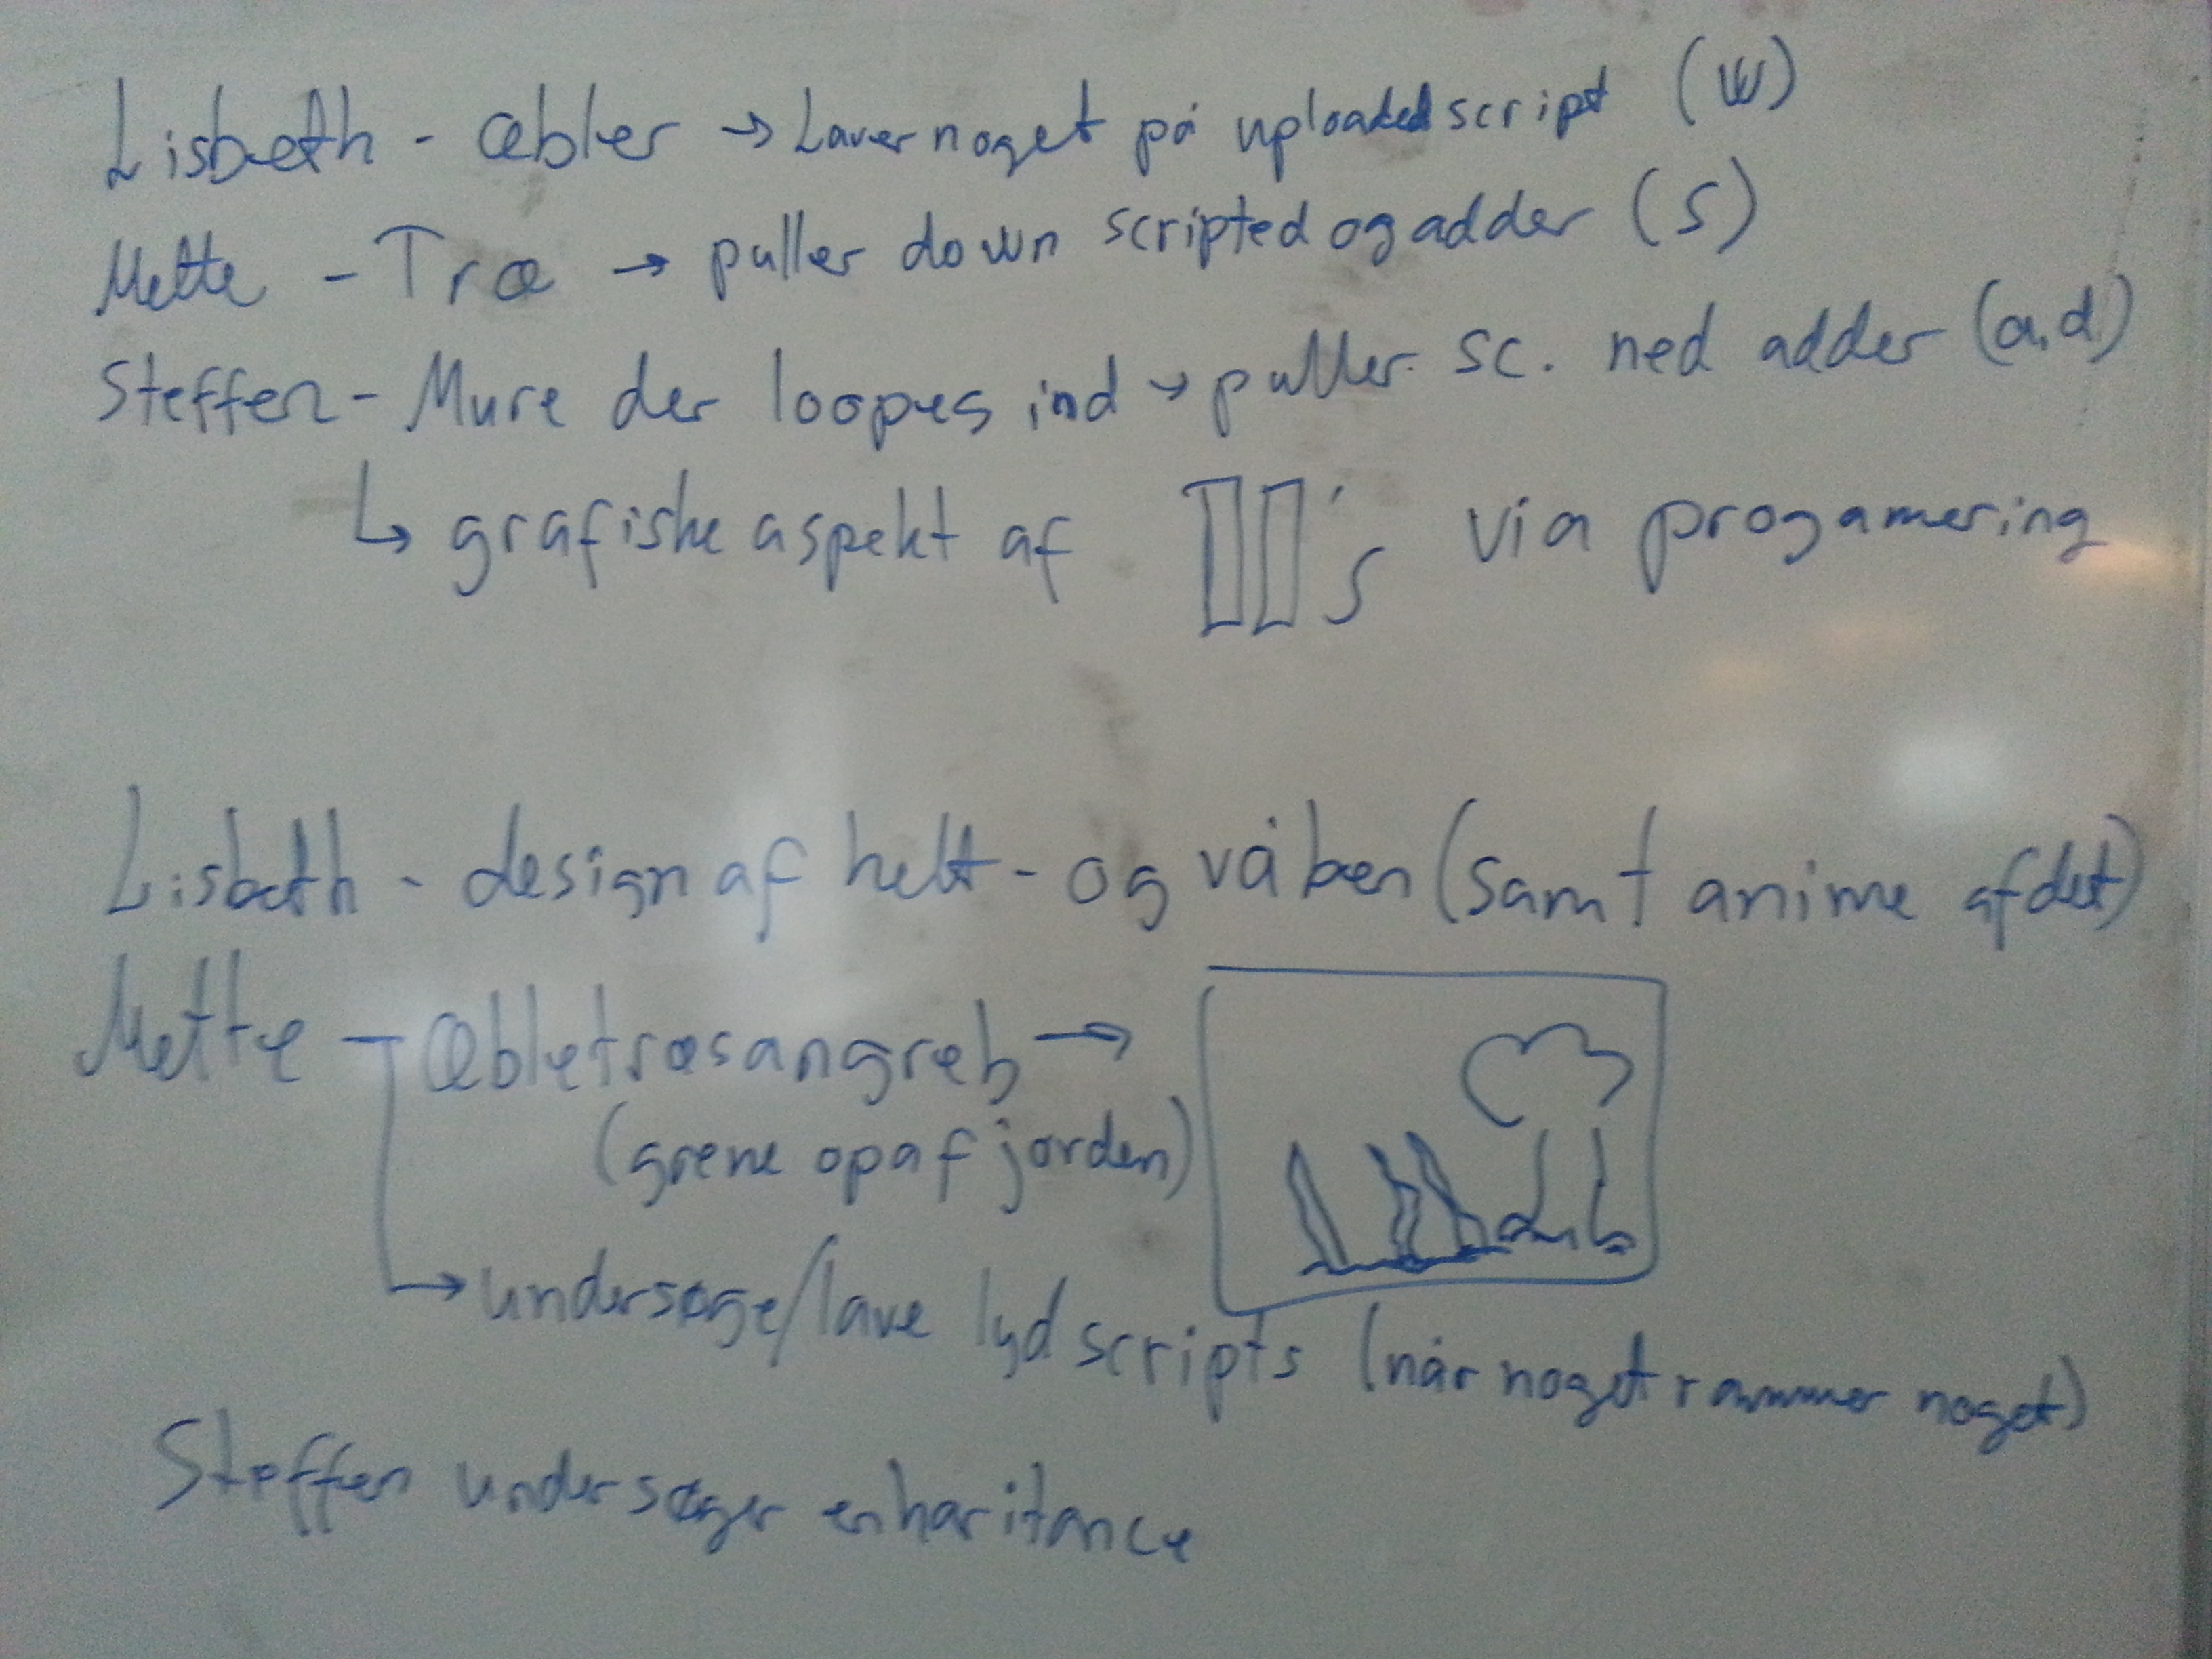 Lisbeth - æbler → Laver noget på uploaded script (W)
Mette - Træ → puller down scripted og adder (S)
Steffen - Mure der loopes ind → puller sc. ned adder (a,d)
↳ grafiske aspekt af 's via progamering
Lisbeth - design af helt - og våben (samt anime af det)
Mette - æbletræsangreb →
(grene op af jorden)
→ undersøge/lave lyd scripts (når noget rammer noget)
Steffen undersøger enharitance